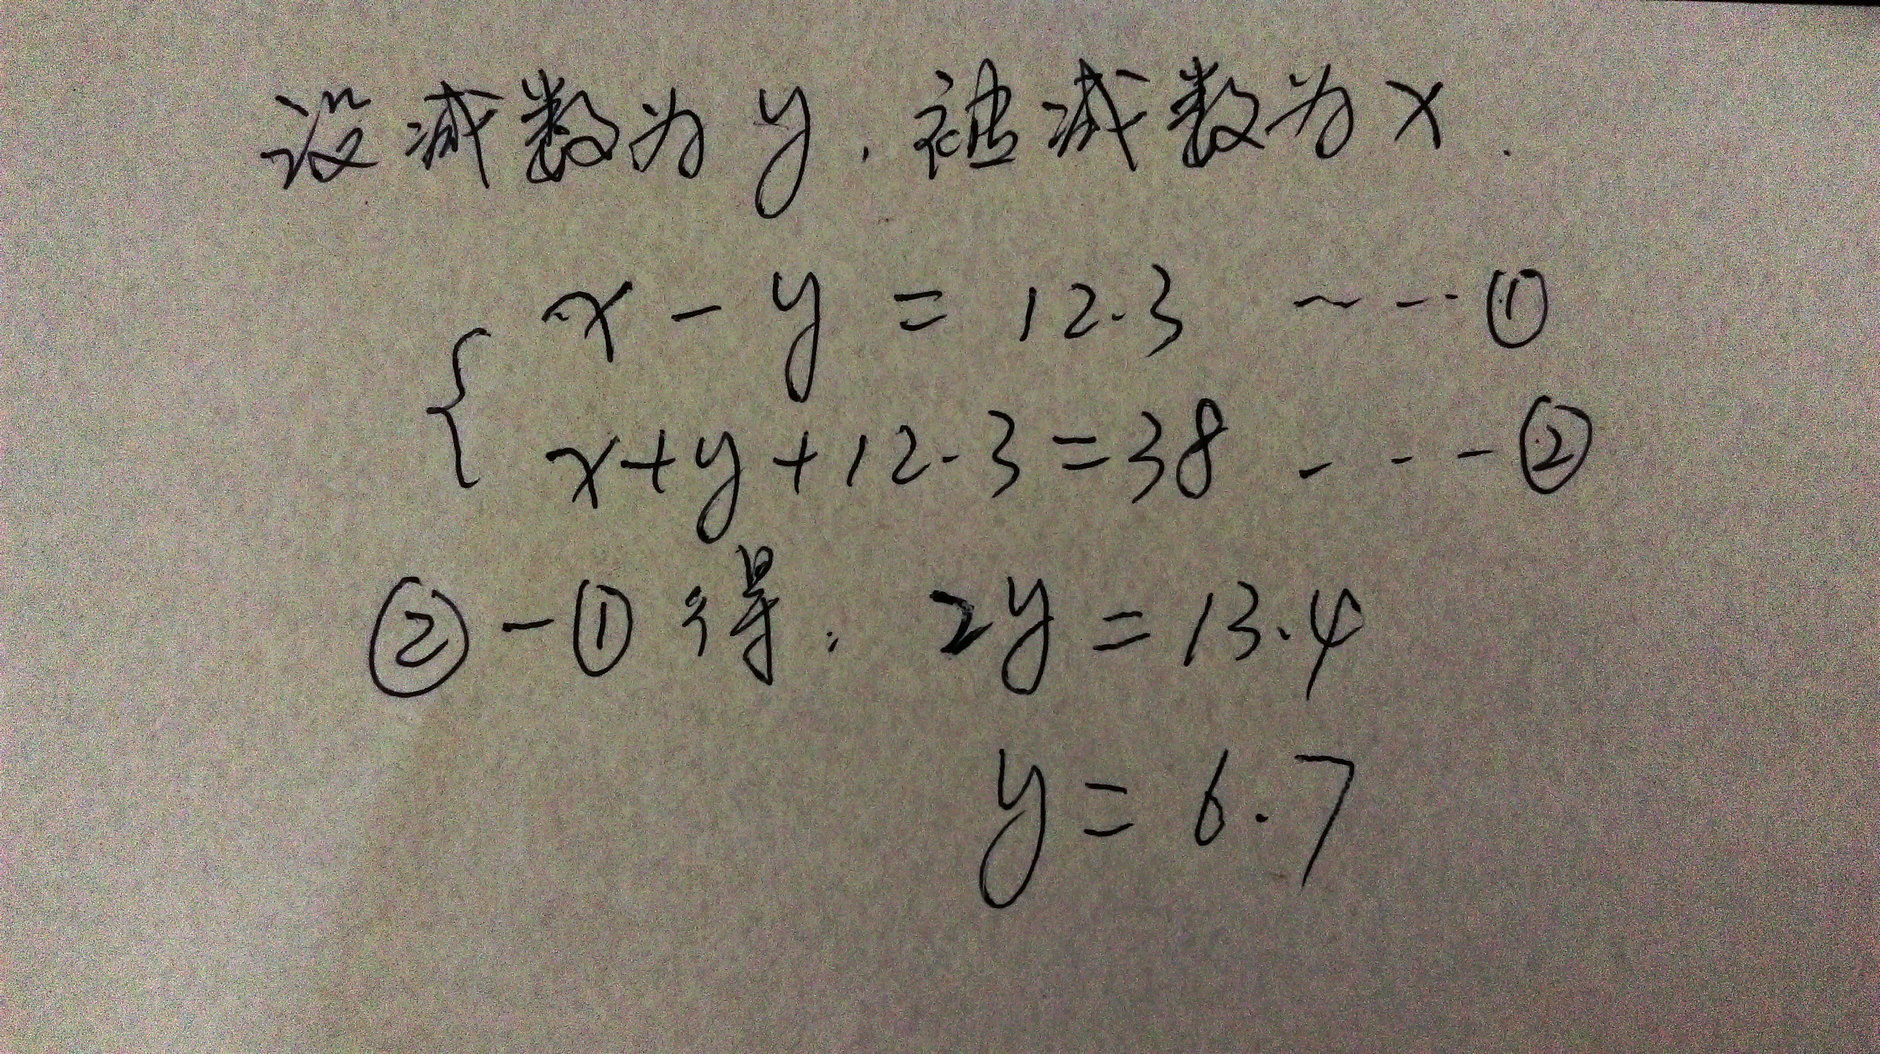 设减数为y,被减数为x.
{ x-y=12.3 ---- ①
x+y+12.3=38 ---- ②
②-①得: 2y=13.4
y=6.7